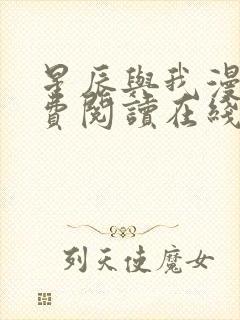 星辰與我漫
費閱讀在綫
列天使魔女